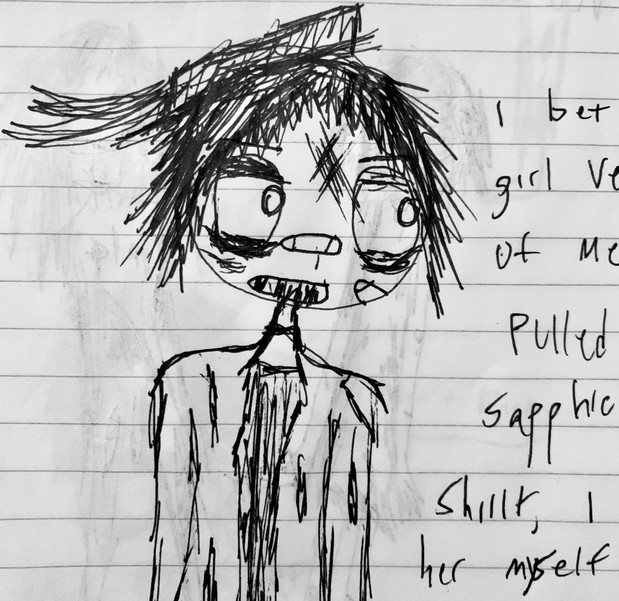 I bet
girl Ve
of Me
Pulled
Sapphic
Shillt, I
her myself